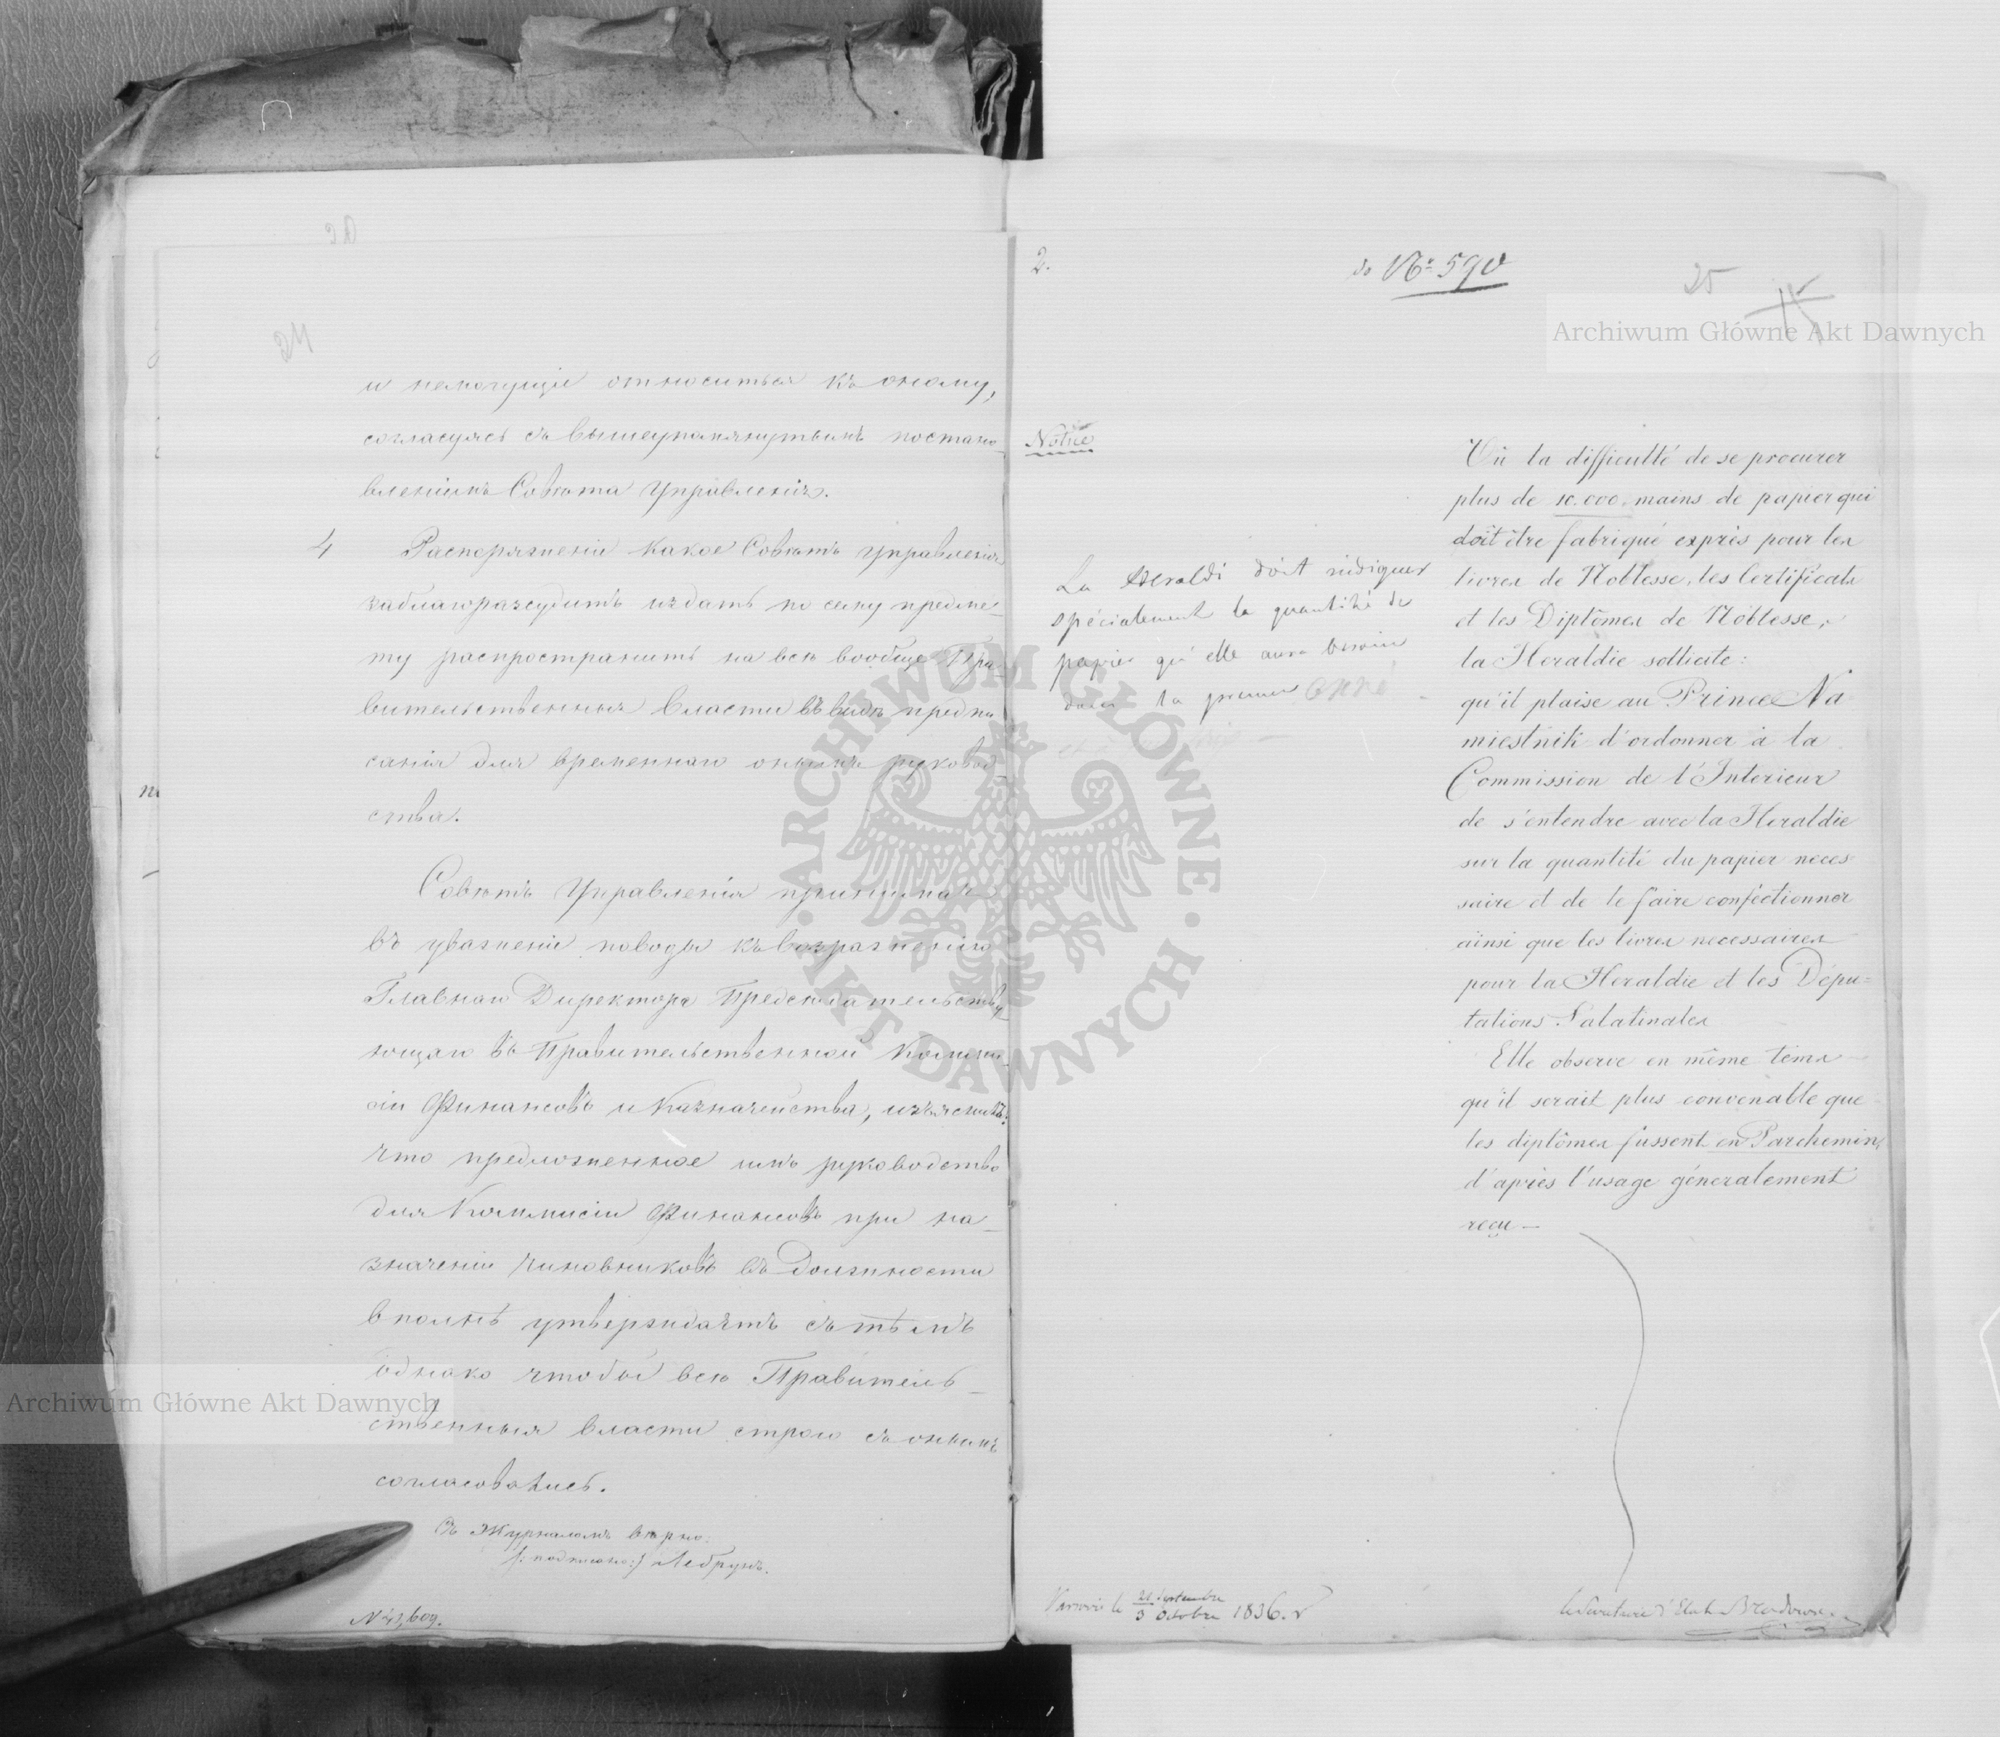 и немогущіе относиться къ оному,
согласуясь съ вышеупомянутымъ постано
вленіемъ Совѣта Управленія.
4 Распоряженіе какое Совѣтъ Управленія
заблагоразсудитъ издать по сему предме-
ту распространить на всѣ вообще Пра-
вительственныя власти въ видѣ предпи
санія для временнаго онымъ руковод
ства.
Совѣтъ Управленія принимая
въ уваженіе поводы къ возраженію
Главнаго Директора Предсѣдательству
ющаго въ Правительственной Коммис
сіи Финансовъ и Казначейства, изъяснилъ:
что предложенное имъ руководство
для Коммисіи Финансовъ при на-
значеніи чиновниковъ въ должности
вполнѣ утверждаетъ съ тѣмъ
однако чтобы всѣ Правитель-
ственныя власти строго съ онымъ
согласовались.
Съ Журналомъ вѣрно:
/:подписано:/ Лебрунъ.
N 42,609.
2.
do № 590
25
Notice
La Heraldi doit indiquer
spécialement la quantité de
papier qu'elle aura besoin
dans la première année
Vû la difficulté de se procurer
plus de 10.000. mains de papier qui
doit être fabriqué exprès pour les
livres de Noblesse, les Certificats
et les Diplômes de Noblesse,
la Heraldie sollicite:
qu'il plaise au Prince Na
miestnik d'ordonner à la
Commission de l'Interieur
de s'entendre avec la Heraldie
sur la quantité du papier neces
saire et de le faire confectionner
ainsi que les livres necessaires
pour la Heraldie et les Dépu=
tations Palatinales
Elle observe en même tems
qu'il serait plus convenable que
les diplômes fussent en Parchemin,
d'après l'usage géneralement
reçu —
Varsovie le 21 Septembre
3 Octobre 1836.
le Secretaire d'Etat
Archiwum Główne Akt Dawnych
Archiwum Główne Akt Dawnych
ARCHIWUM GŁÓWNE · AKT DAWNYCH ·